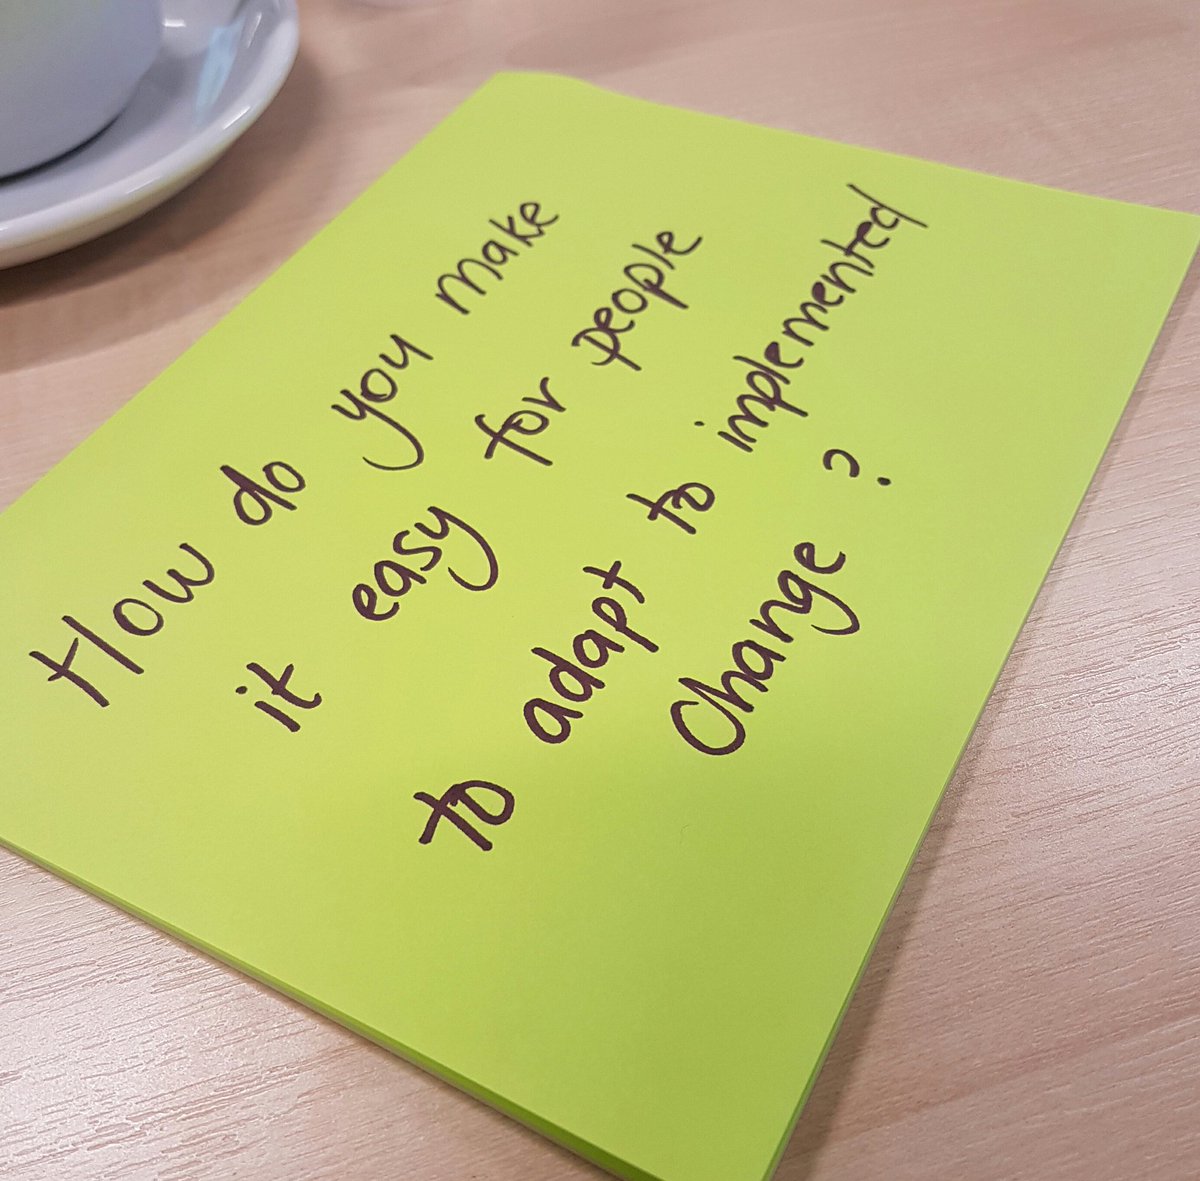 How do you make
it easy for people
to adapt to implemented
Change?